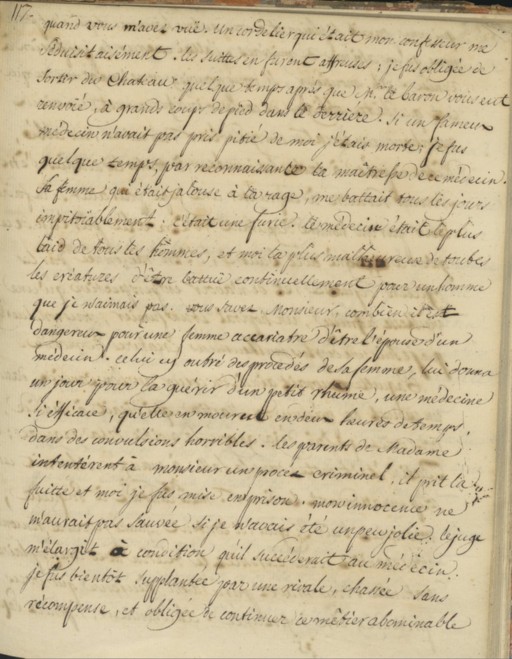 117.
quand vous m'avez vuë. un cordelier qui était mon confesseur me
séduisit aisément. les suittes en furent affreuses; je fus obligée de
sortir du Chateau quelque temps après que Mr. le baron vous eut
renvoié, à grands coups de pied dans le derriére. Si un fameux
médecin n'avait pas pris pitié de moi j'étais morte; je fus
quelque temps, par reconnaissance la maîtresse de ce médecin.
Sa femme qui était jalouse à la rage, me battait tous les jours
impitoiablement; c'était une furie. le médecin était le plus
laid de tous les hommes, et moi la plus malheureuse de toutes
les créatures d'être battuë continuellement pour un homme
que je n'aimais pas. vous savez Monsieur, combien il est
dangereux pour une femme accariatre d'être l'épouse d'un
médecin. celui cy outré des procedés de sa femme, lui donna
un jour pour la guérir d'un petit rhume, une médecine
si efficace, qu'elle en mourut en deux heures de temps,
dans des convulsions horribles. les parents de Madame
intentérent à monsieur un procez criminel; il prit la
fuitte et moi je fus mise en prison. mon innocence ne
m'aurait pas sauvée si je n'avais été un peu jolie. le juge
m'élargit à condition qu'il succéderait au médecin.
je fus bientôt supplantée par une rivale, chassée sans
récompense, et obligée de continuer ce métier abominable